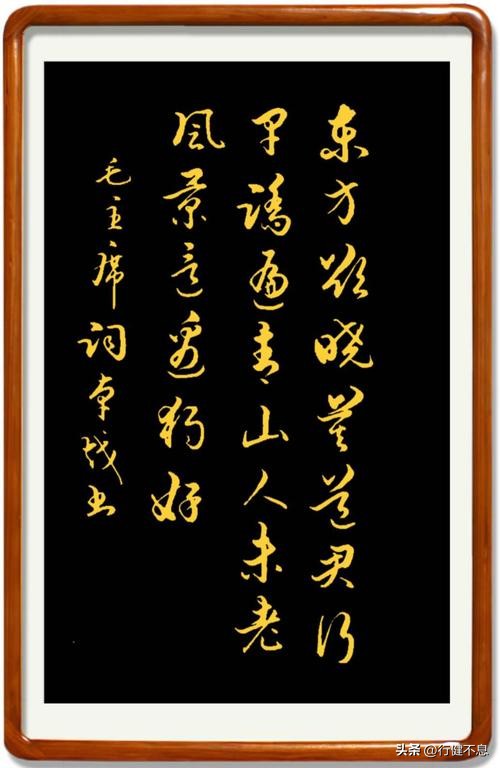 东方欲晓莫道君行
早踏遍青山人未老
风景这边独好
毛主席词卓书
头条 @行健不息